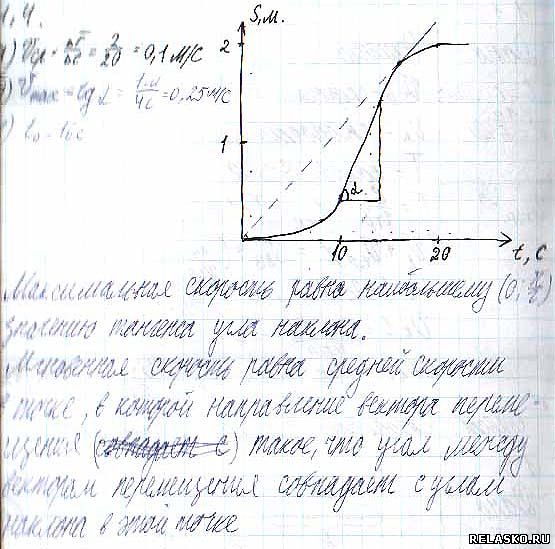 1.4.
S, м.
а) Vср = ΔS/Δt = 2/20 = 0,1 м/с
2
Vmax = tg α = 1м/4с = 0,25 м/с
1
α
10
20
t, с
Максимальная скорость равна наибольшему (0; π/2)
значению тангенса угла наклона.
Мгновенная скорость равна средней скорости
в точке, в которой направление вектора переме-
щения (совпадает с) такое, что угол между
вектором перемещения совпадает с углом
наклона в этой точке
RELASKO.RU